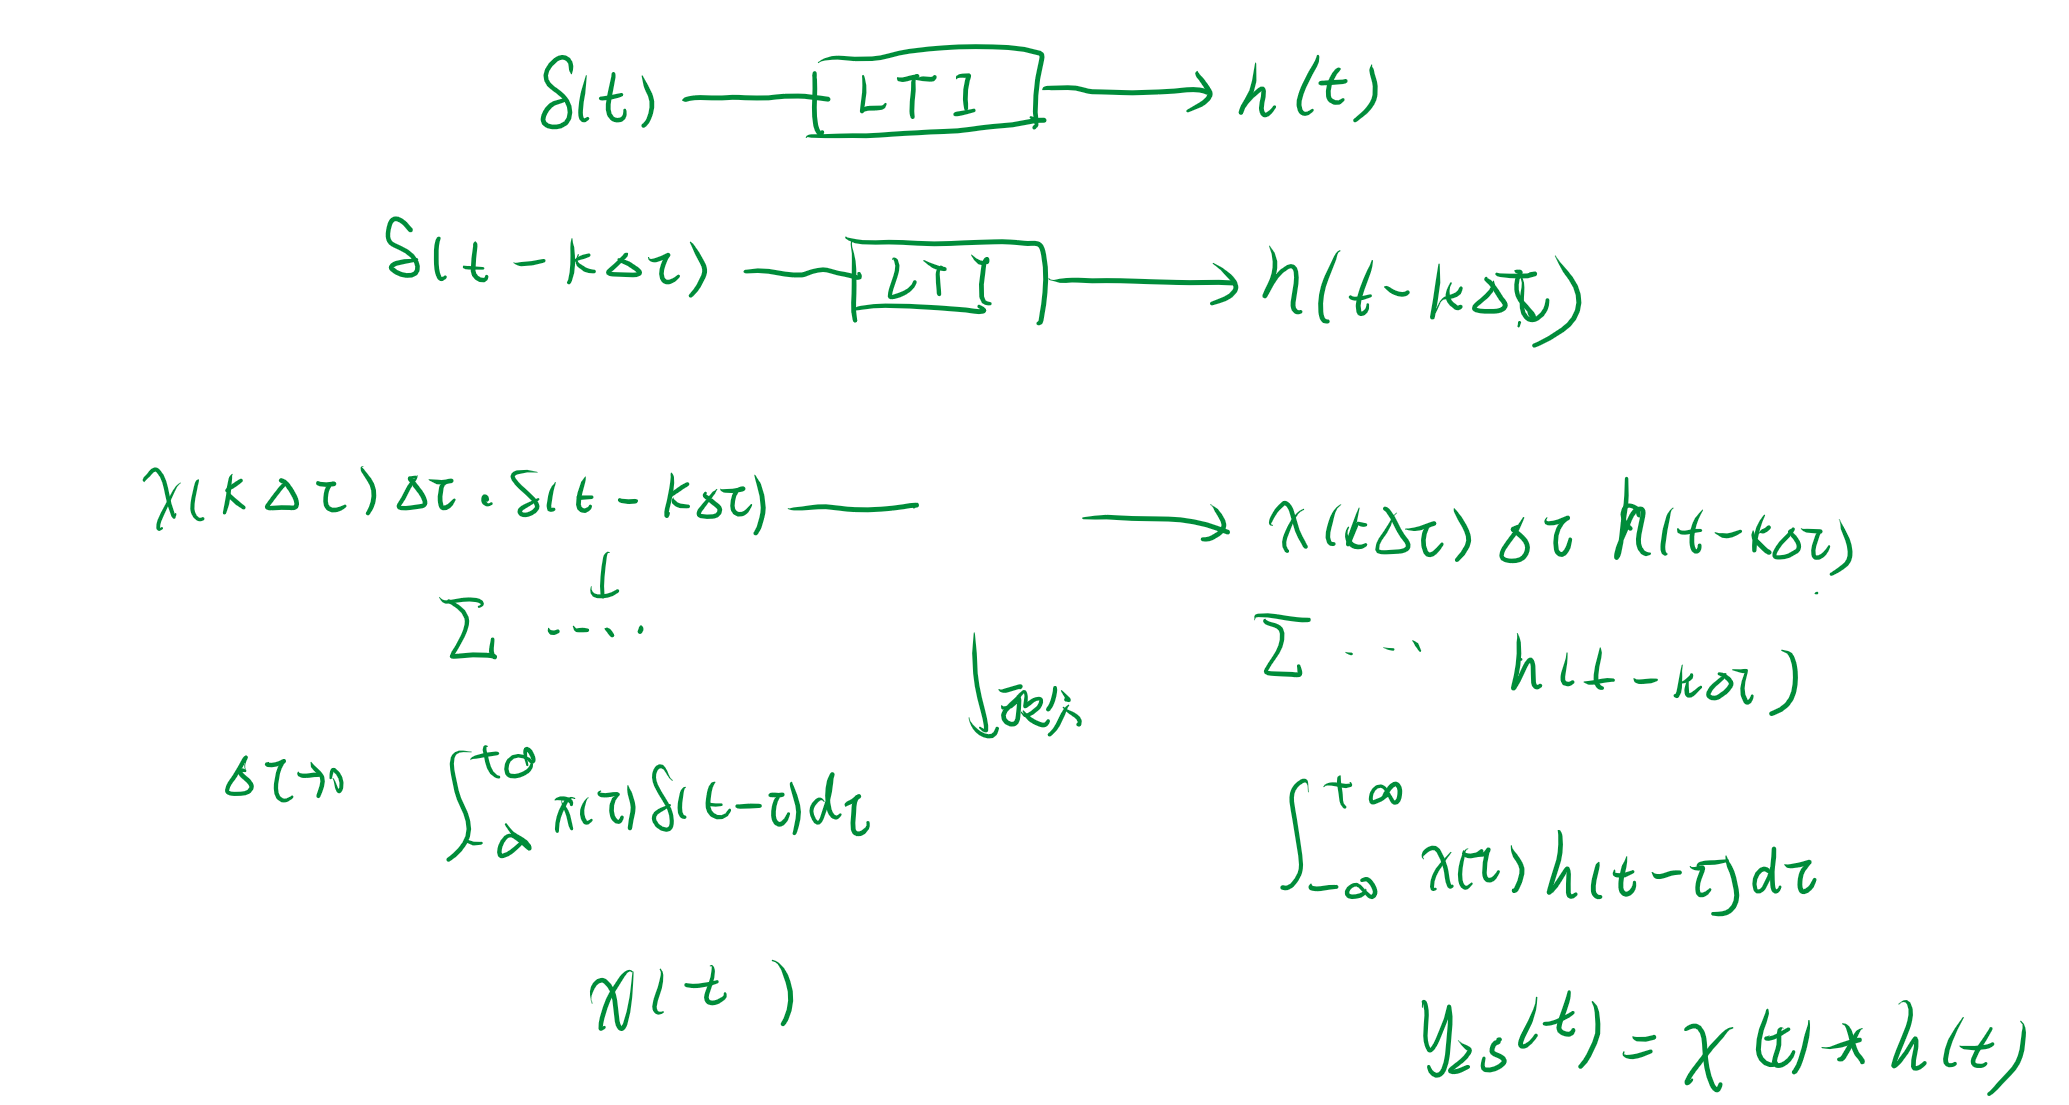 δ(t) —[LTI]→ h(t)
δ(t-kΔτ) —[LTI]→ h(t-kΔτ)
x(kΔτ)Δτ·δ(t-kΔτ) — → x(kΔτ) Δτ h(t-kΔτ)
↓
Σ ····
Σ ··· h(t-kΔτ)
↓
Δτ→0 ∫_{-∞}^{+∞} x(τ)δ(t-τ)dτ
∫_{-∞}^{+∞} x(τ)h(t-τ)dτ
x(t)
y_{zs}(t) = x(t)*h(t)